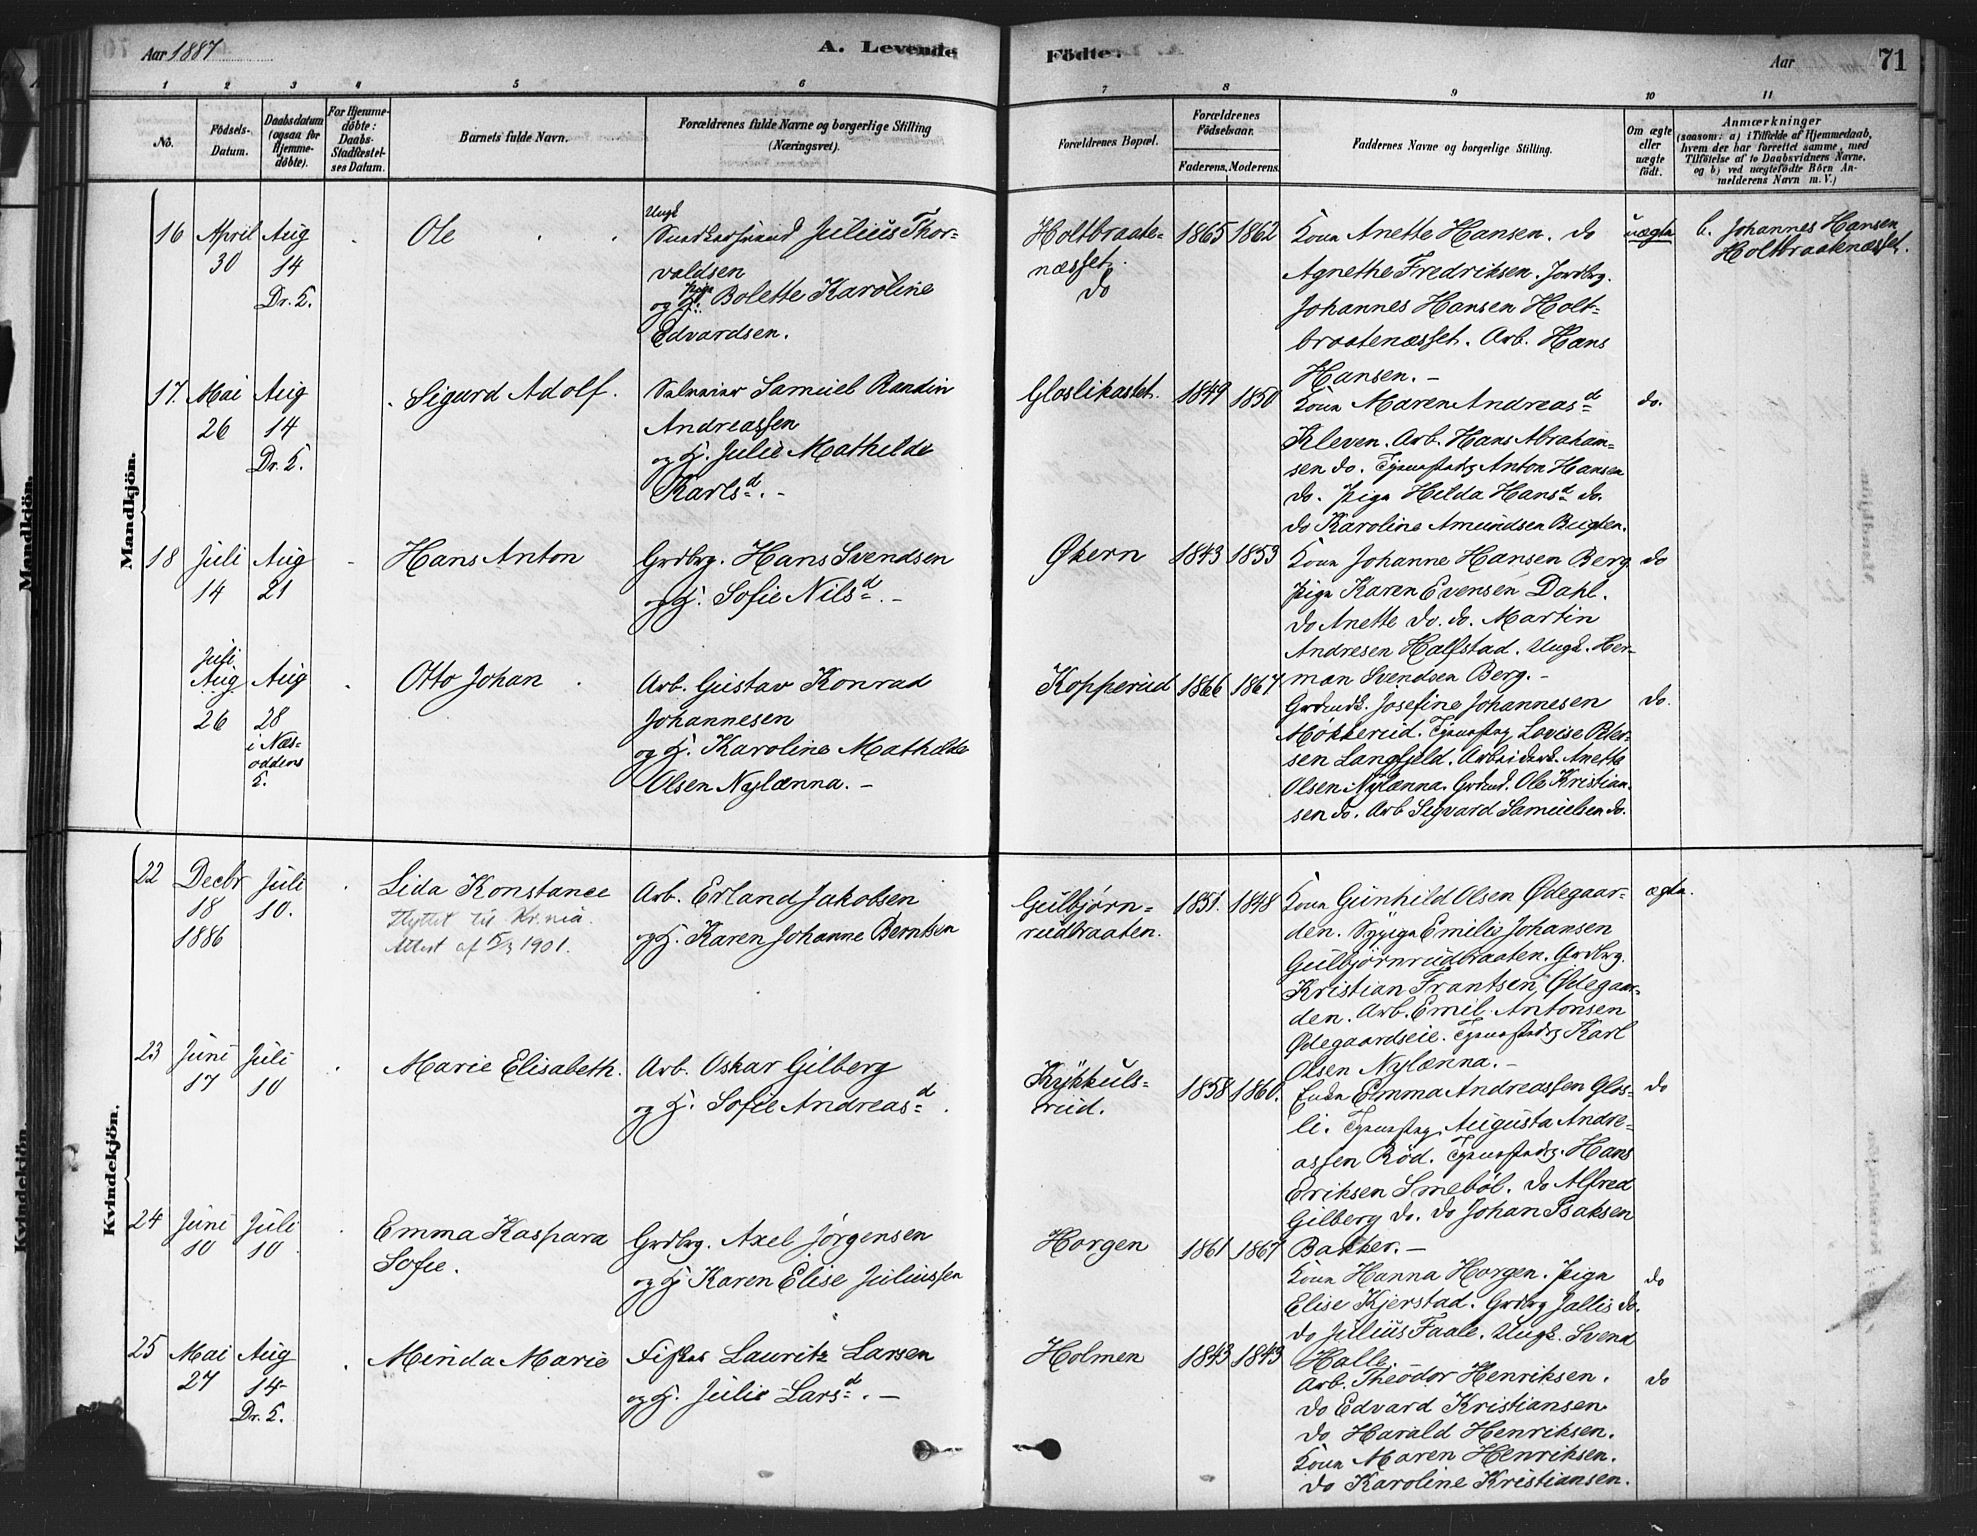 Aar 1887
A. Levende
Födte.
Aar
71
1 2 3 4 5 6 7 8 9 10 11
No.
Födsels-
Datum.
Daabsdatum
(ogsaa for
Hjemme-
döbte).
For Hjemme-
döbte:
Daabs-
Stadfæstel-
ses Datum.
Barnets fulde Navn.
Forældrenes fulde Navne og borgerlige Stilling
(Næringsvei).
Forældrenes Bopæl.
Forældrenes
Födselsaar.
Faderens. Moderens.
Faddernes Navne og borgerlige Stilling.
Om ægte
eller
uægte
födt.
Anmærkninger
(saasom: a) i Tilfælde af Hjemmedaab,
hvem der har forrettet samme, med
Tilföielse af to Daabsvidners Navne,
og b) ved uægtefödte Börn An-
melderens Navn m. V.)
Mandkjön.
16
April
30
Aug
14
Dr. K.
Ole
Ungk
Julius Thor-
valdsen
og Pige Bolette Karoline
Edvardsen.
Holtbraate-
næsset.
do
1865 1862
Kona Anette Hansen. do
Agnethe Fredriksen. Jordbrg.
Johannes Hansen Holt-
braatenæsset. Arb. Hans
Hansen. –
uægte
b. Johannes Hansen
Holtbraatenæsset.
17.
Mai
26
Aug
14
Dr. K.
Sigurd Adolf.
Samuel Randin
Andreassen
og H. Julie Mathilde
Karlsd. –
Gloslikastet.
1849 1850
Kona Maren Andreasd
Kleven. Arb. Hans Abraham-
sen do. Tjenestedrg Anton Hansen
do. Pige Hilda Hansd do.
do Karoline Amundsen Bugten.
do.
18
Juli
14
Aug
21
Hans Anton
Grdbrg. Hans Svendsen
og H. Sofie Nilsd. –
Økern
1843 1853
Kona Johanne Hansen Berg
Pige Karen Evensen Dahl.
do Anette do. do. Martin
Andresen Halfstad. Ungk. Her-
man Svendsen Berg. –
do
Juli
Aug
26
Aug
28
i Næs-
oddens
K.
Otto Johan
Arb. Gustav Konrad
Johannesen
og H. Karoline Mathilde
Olsen Nylænna. –
Kopperud
1866 1867
Josefine Johannesen
Møkkerud. Tjenestpg Lovise Peter-
sen Langfjeld. Arbeiderk. Anette
Olsen Nylænna. Grdmd. Ole Kristian-
sen do. Arb Sigvard Samuelsen do.
do.
Kvindekjön.
22
Decbr
18
1886
Juli
10.
Lida Konstance
Flyttet til Kr.nia.
Attest af 5/3 1901.
Arb. Erland Jakobsen
og H. Karen Johanne Berntsen
Gulbjørn-
rudbraaten.
1851. 1848
Kona Gunhild Olsen Ødegaar-
den. Sypige Emilie Johansen
Gulbjørnrudbraaten. Grdbrg.
Kristian Frantsen, Ødegaar-
den. Arb. Emil Antonsen
Ødegaardseie. Tjenestedrg Karl
Olsen Nylænna. –
ægte.
23
Juni
17
Juli
10
Marie Elisabeth.
Arb. Oskar Gilberg
og H. Sofie Andreasd.
Kykkuls-
rud.
1858 1860.
Enke Emma Andreassen Glos-
li. Tjenestpg. Augusta Andre-
assen Rød. Tjenestedrg. Hans
Eriksen Smebøl. do Alfred
Gilberg do. do Johan Isaksen
Bakker. –
do
24
Juni
10
Juli
10
Emma Kaspara
Sofie.
Grdbrg. Axel Jørgensen
og H Karen Elise Juliussen
Horgen
1861 1867
Kona Hanna Horgen. Pige
Elise Kjerstad. Grdbrg Jallis do.
do Julius Faale. Ungk. Svend
Halle. –
do
25
Mai
27
Aug
14
Dr. K.
Minda Marie
Fisker Lauritz Larsen
og H. Julie Larsd. –
Holmen
1843 1843
Arb. Theodor Henriksen.
do Edvard Kristiansen.
do Harald Henriksen.
Kona Maren Henriksen.
do Karoline Kristiansen.
do